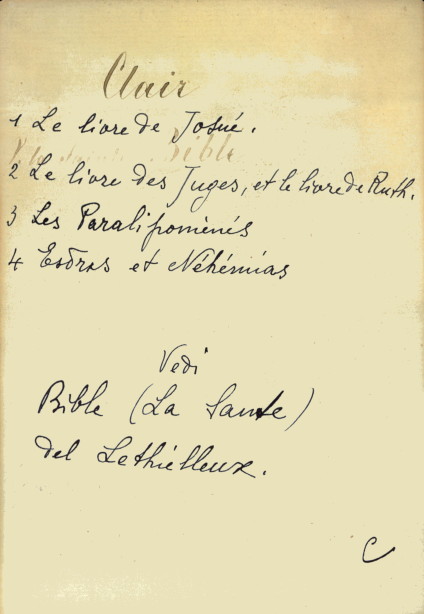 Clair
1 Le livre de Josué.
Bible
2 Le livre des Juges, et le livre de Ruth.
3 Les Paralipoménés
4 Esdras et Néhémias
Vedi
Bible (La Sainte)
del Lethielleux.
C